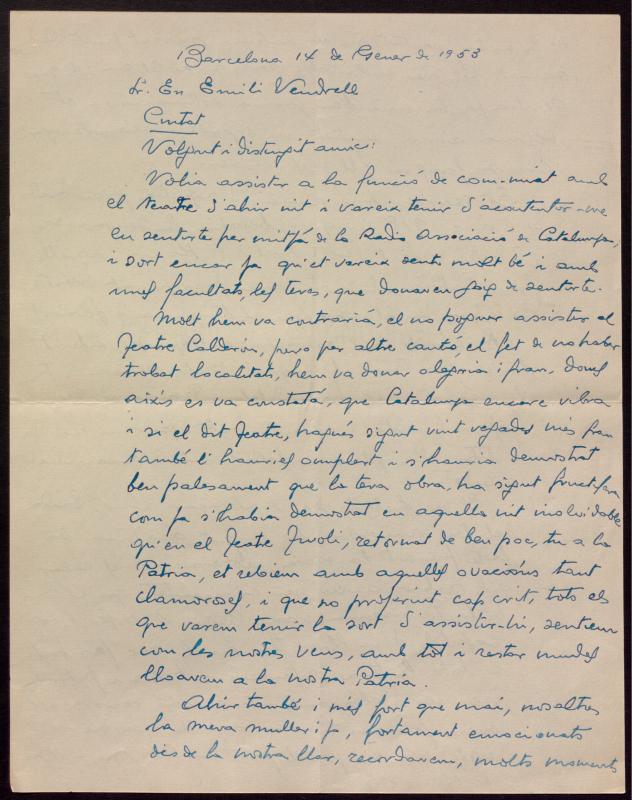 Barcelona 14 de Gener de 1953
Sr. En Emili Vendrell
Ciutat
Volgut i distingit amic:
Volia assistir a la funció de com-miat amb
el teatre d'ahir nit i vareix tenir d'acontentar-me
en sentirte per mitjá de la Radio Associació de Catalunya,
i sort encar ja qu'et vareix sentir molt bé i amb
unes facultats, les teves, que donaven goig de sentirte.
Molt hem va contrariá, el no poguer assistir al
Teatre Calderón, pero per altre cantó, el fet de no haber
trobat localitats, hem va donar alegria i gran, doncs
aixís es va constatá, que Catalunya encare vibra
i si el dit Teatre, hagués sigut vint vegades més gran
també l'hauries omplert i s'hauria demostrat
ben palesament que la teva obra, ha sigut fructífera
com ja s'habia demostrat en aquella nit inolvidable
qu'en el Teatre Tivoli, retornat de ben poc, tu a la
Patria, et rebiem amb aquelles ovacións tant
clamoroses, i que no proferint cap crit, tots els
que varem tenir la sort d'assistir-hi, sentiem
com les nostres veus, amb tot i restar mudes
lloaven a la nostra Patria.
Ahir també i més fort que mai, nosaltres
la meva muller i jo, fortament emocionats
des de la nostra llar, recordavem, molts moments